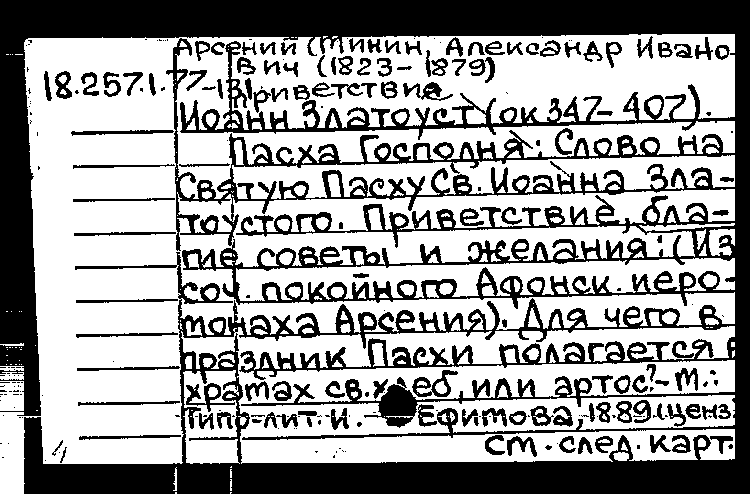 Арсений (Минин, Александр Ивано-
вич (1823-1879)
18.257.1.77-131
Приветствие
Иоанн Златоуст (ок 347-407).
Пасха Господня: Слово на
Святую Пасху Св. Иоанна Зла-
тоустого. Приветствие, бла-
гие советы и желания: (Из
соч. покойного Афонск. иеро-
монаха Арсения). Для чего в
праздник Пасхи полагается в
храмах св. хлеб, или артос? - М.:
Типо-лит. И. Ефимова, 1889 (ценз.
См. след. карт.